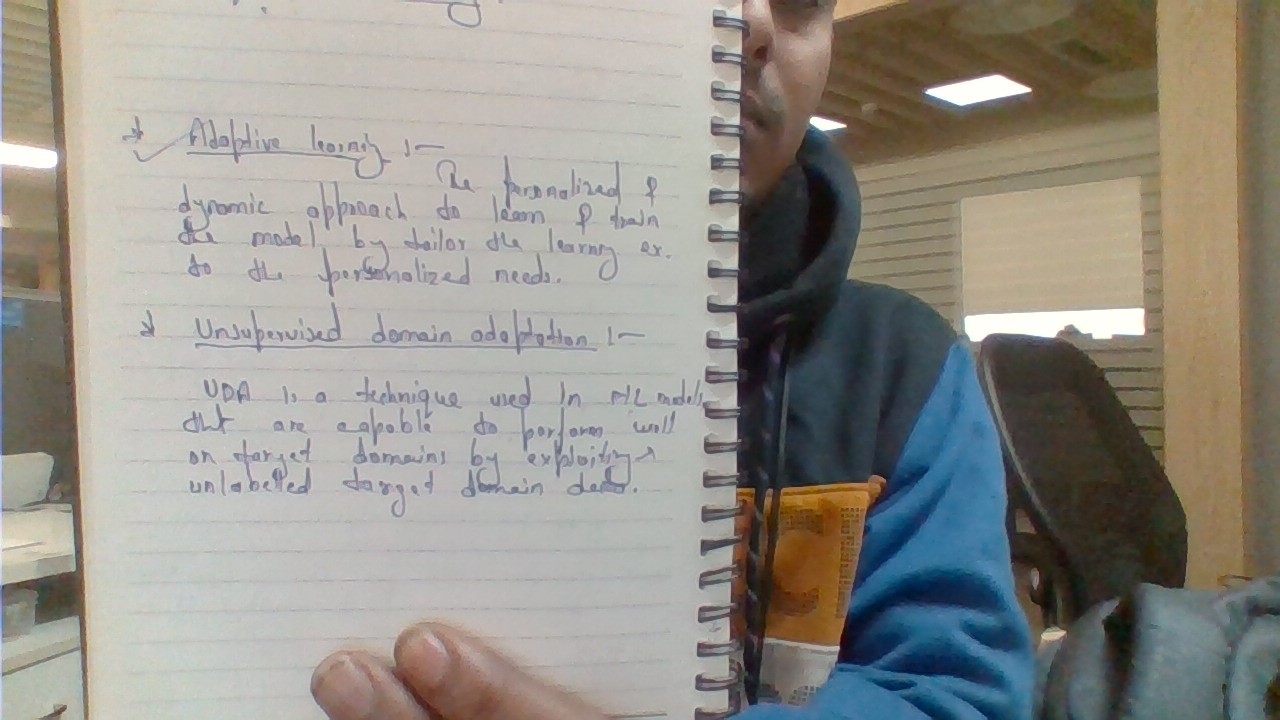 * Adaptive learning :-
The personalized &
dynamic approach to learn & train
the model, by tailor the learning ex.
to the personalized needs.
* Unsupervised domain adaptation :-
UDA is a technique used in ML models
tht are capable to perform well
on target domains by exploiting
unlabelled target domain data.